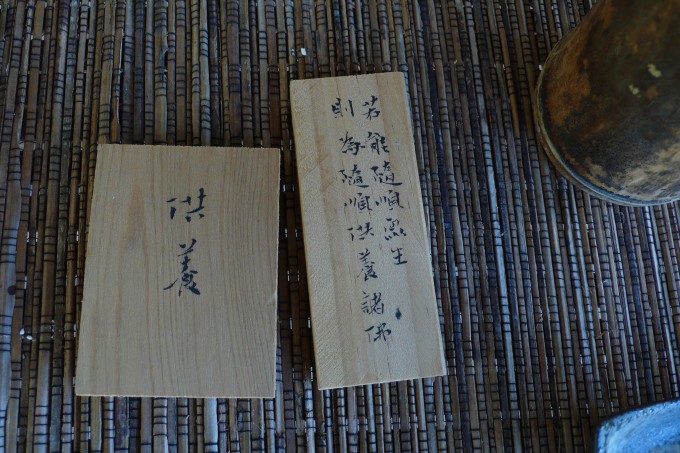 供養
若能隨順眾生
則為隨順供養諸佛